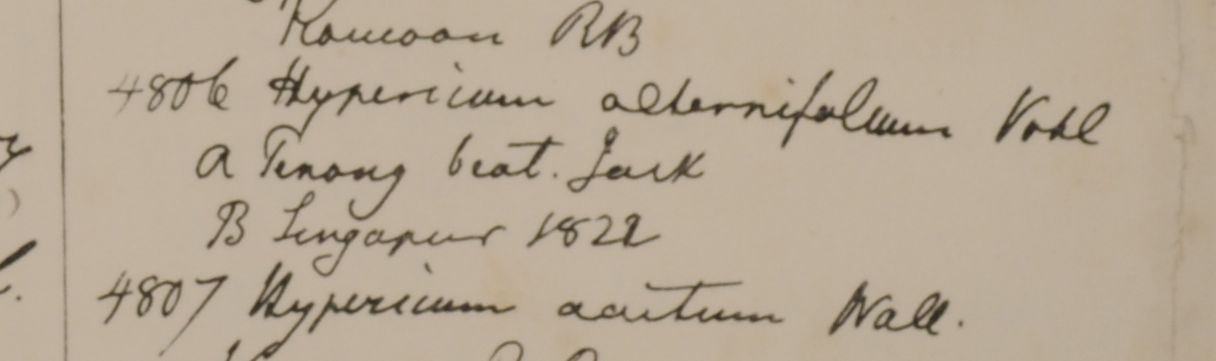 Kamoon RB
4806 Hypericum alternifolium Vahl
a Penang beat. Jack
B Singapur 1822
4807 Hypericum Wall.